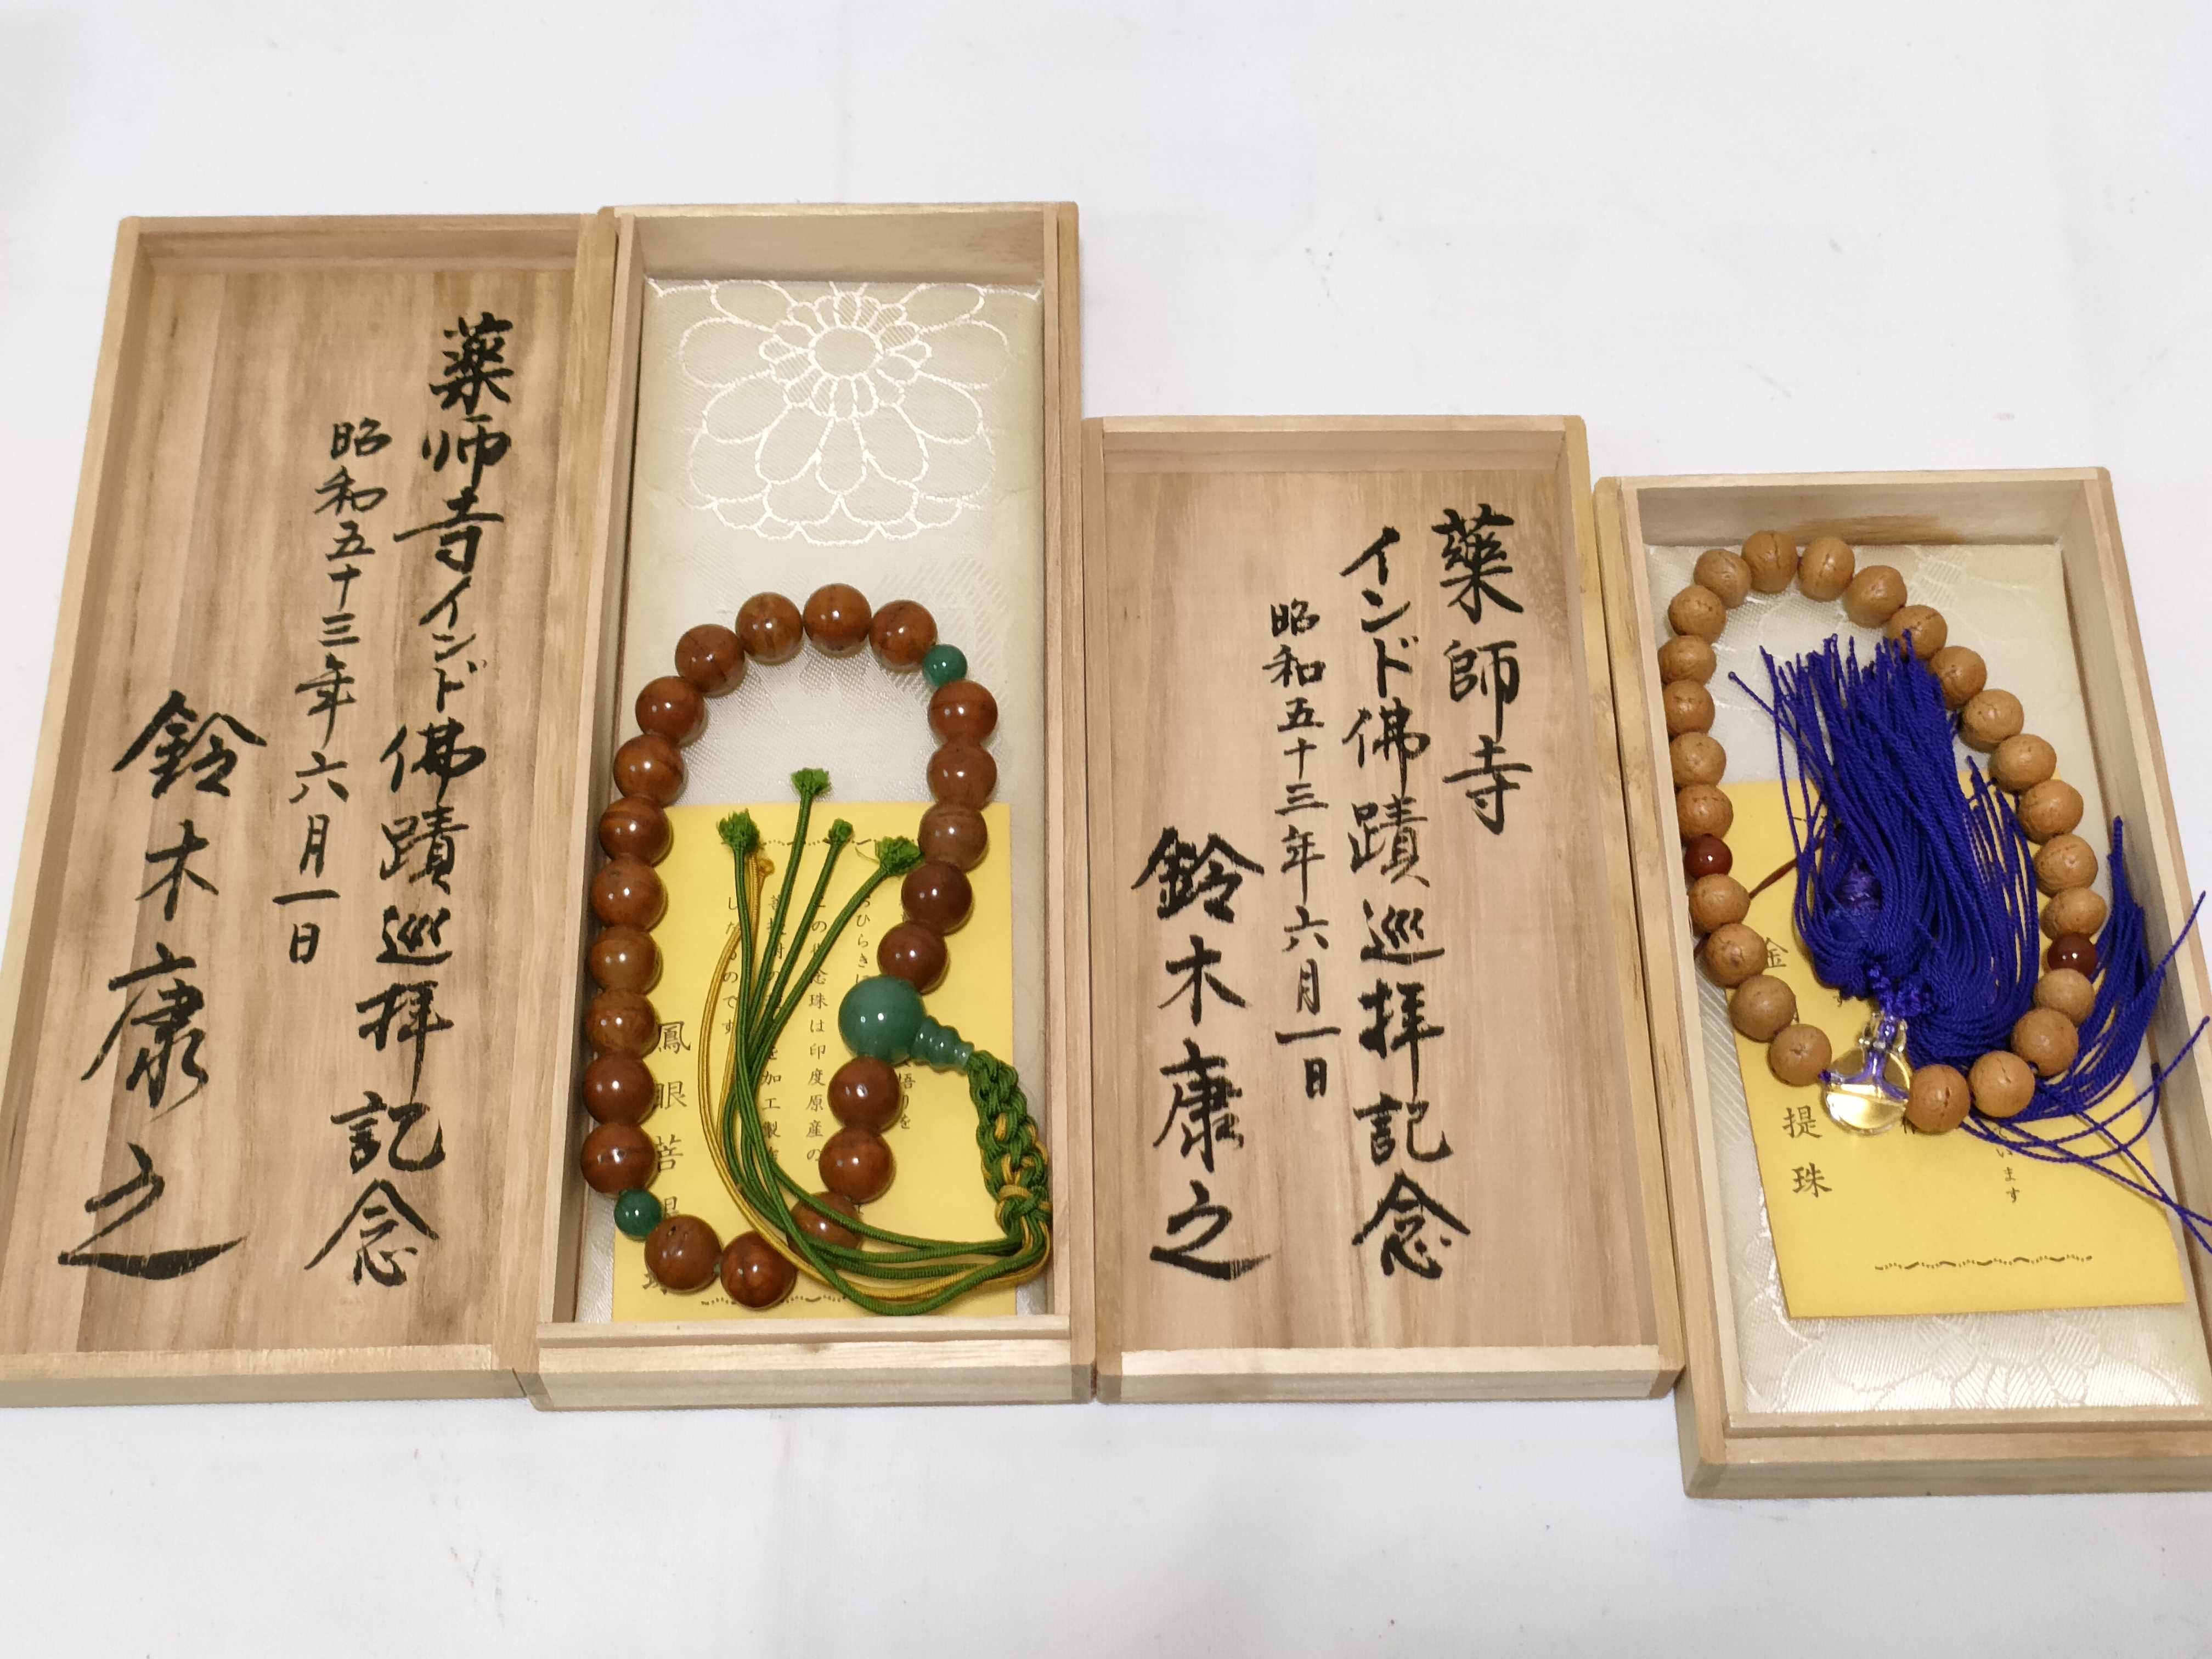 薬師寺インド佛蹟巡拝記念
昭和五十三年六月一日
鈴木康之
ひらきに
悟りを
この念珠は印度原産の
菩提樹の を加工製作
したものです
鳳眼菩提珠
薬師寺
インド佛蹟巡拝記念
昭和五十三年六月一日
鈴木康之
います
す
金
提珠